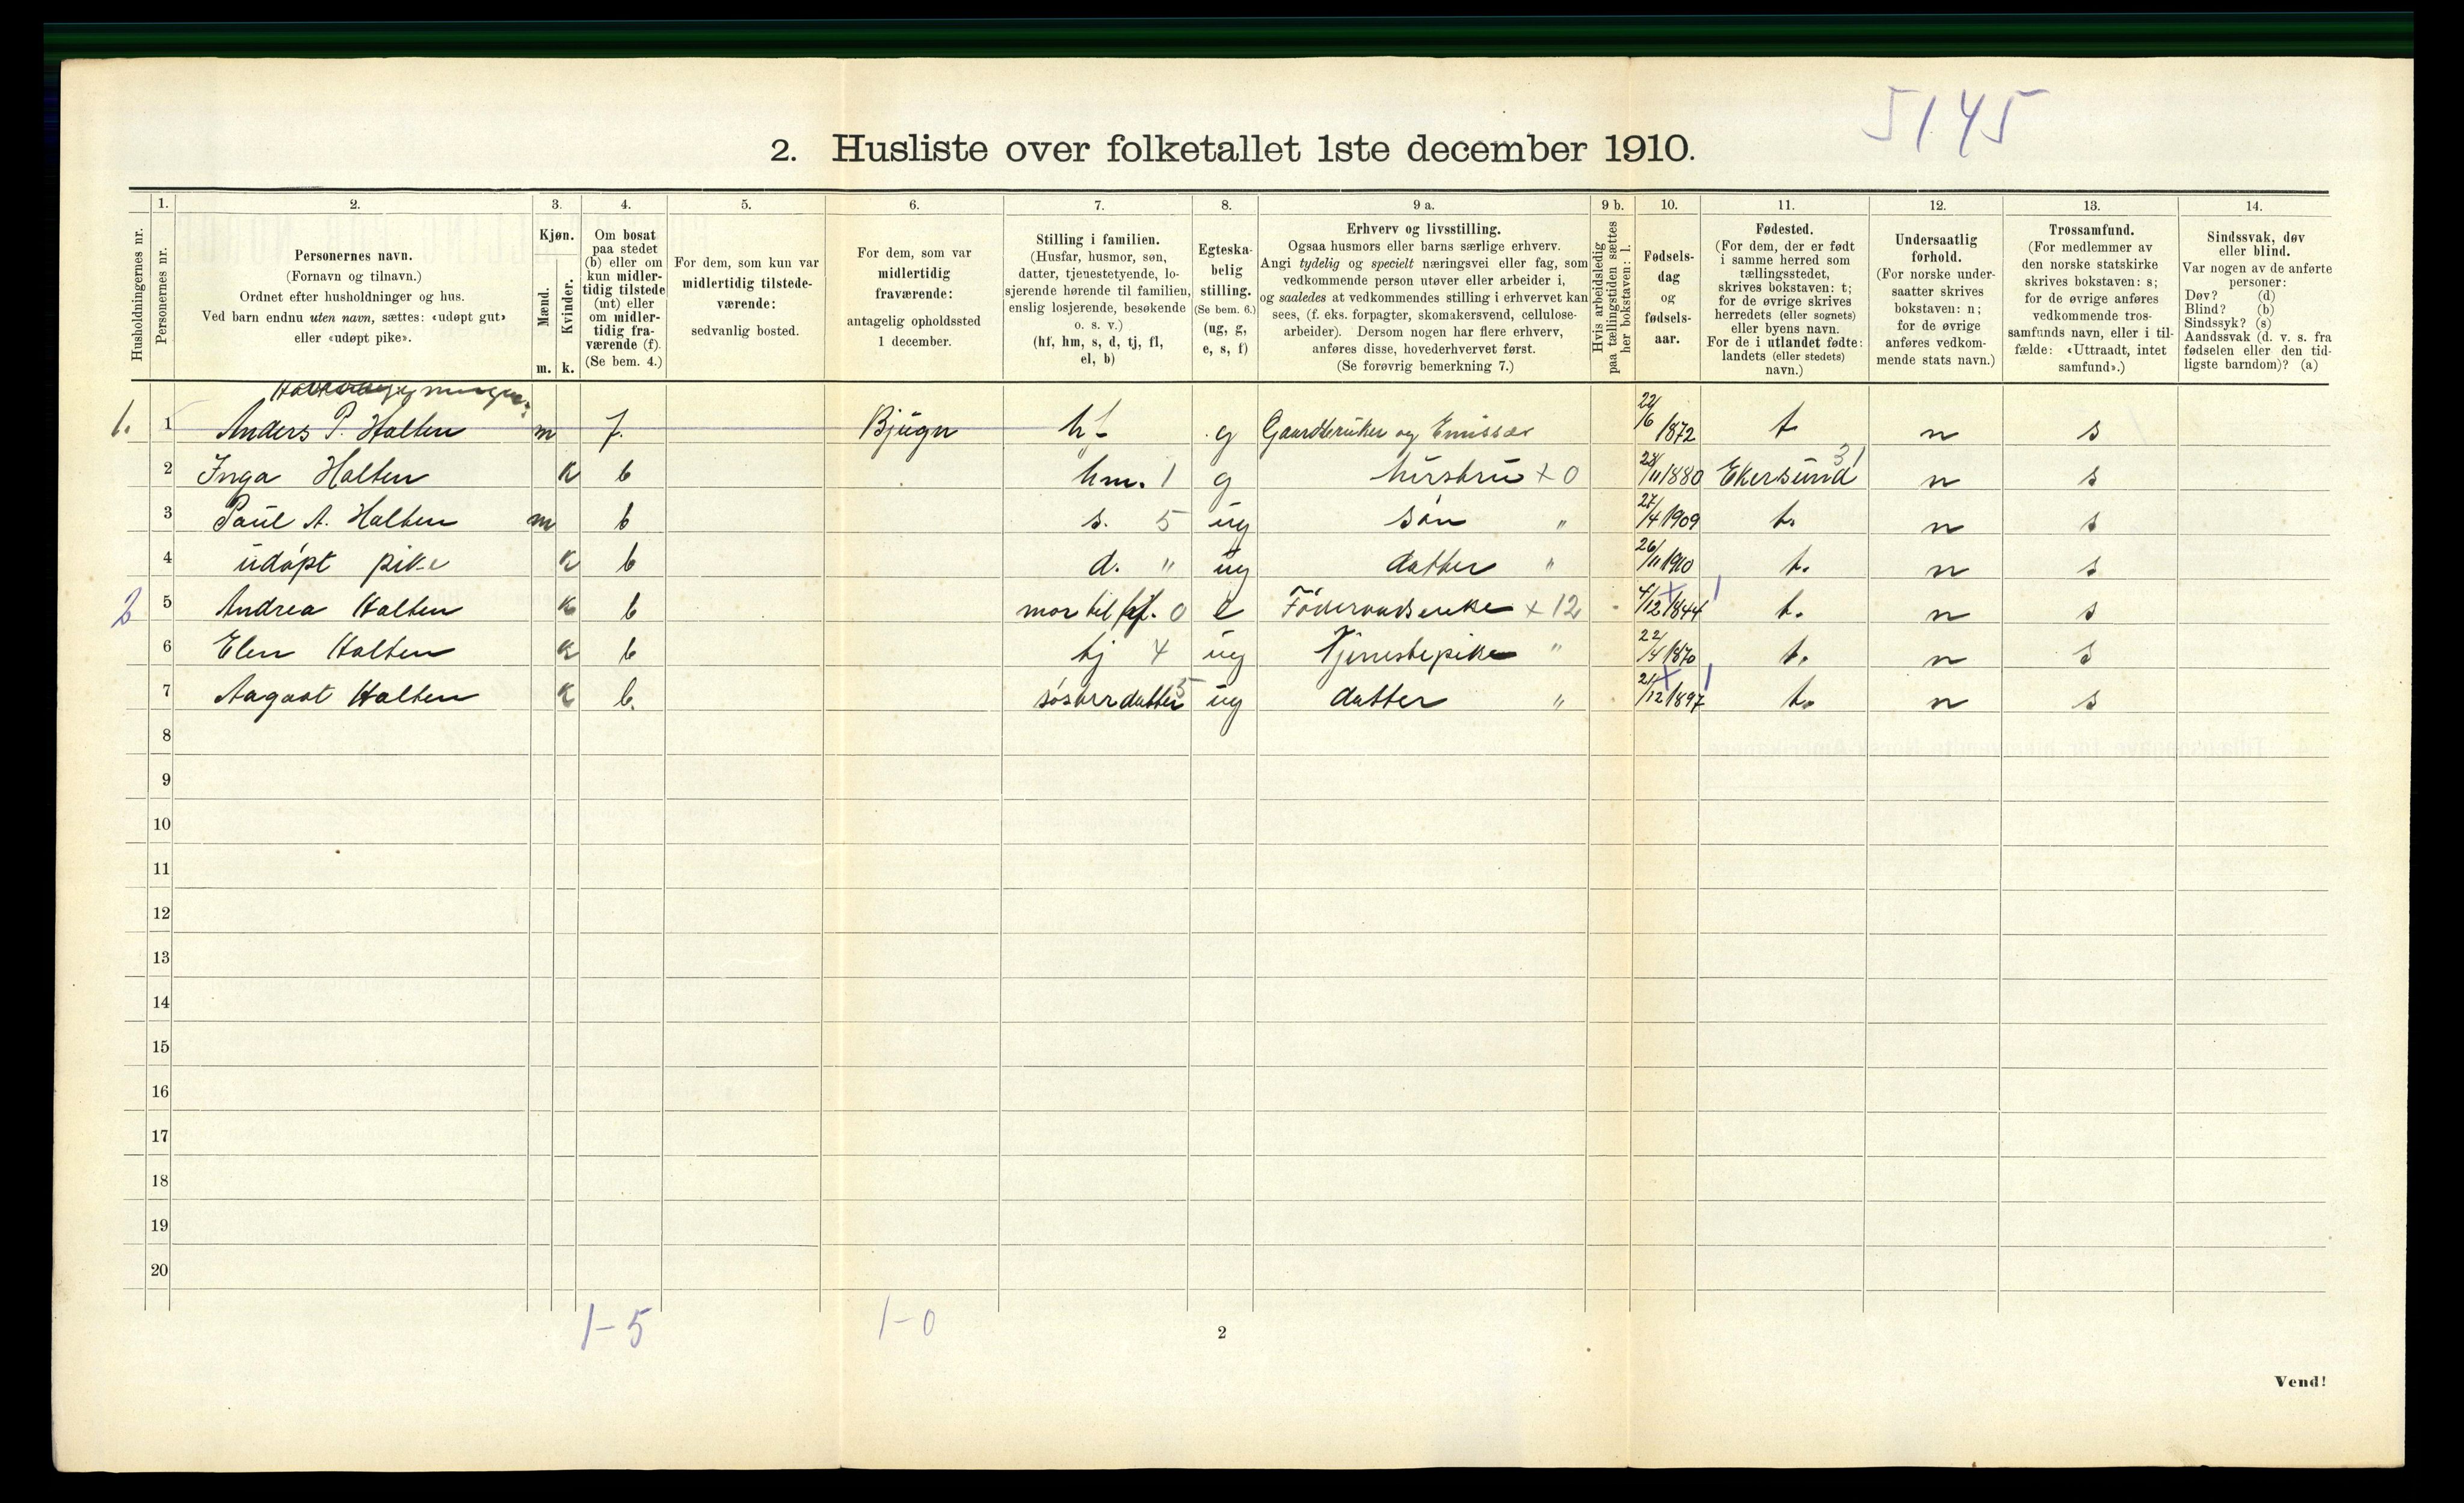 5145
2. Husliste over folketallet 1ste december 1910.
Husholdningernes nr.
1.
Personernes nr.
2.
Personernes navn.
(Fornavn og tilnavn.)
Ordnet efter husholdninger og hus.
Ved barn endnu uten navn, sættes: «udøpt gut»
eller «udøpt pike».
3.
Kjøn.
Mænd.
Kvinder.
m. k.
4.
Om bosat
paa stedet
(b) eller om
kun midler-
tidig tilstede
(mt) eller
om midler-
tidig fra-
værende (f).
(Se bem. 4.)
5.
For dem, som kun var
midlertidig tilstede-
værende:
sedvanlig bosted.
6.
For dem, som var
midlertidig
fraværende:
antagelig opholdssted
1 december.
7.
Stilling i familien.
(Husfar, husmor, søn,
datter, tjenestetyende, lo-
sjerende hørende til familien,
enslig losjerende, besøkende
o. s. v.)
(hf, hm, s, d, tj, fl,
el, b)
8.
Egteska-
belig
stilling.
(Se bem. 6.)
(ug, g,
e, s, f)
9 a.
Erhverv og livsstilling.
Ogsaa husmors eller barns særlige erhverv.
Angi tydelig og specielt næringsvei eller fag, som
vedkommende person utøver eller arbeider i,
og saaledes at vedkommendes stilling i erhvervet kan
sees, (f. eks. forpagter, skomakersvend, cellulose-
arbeider). Dersom nogen har flere erhverv,
anføres disse, hovederhvervet først.
(Se forøvrig bemerkning 7.)
9 b.
Hvis arbeidsledig
paa tællingstiden sættes
her bokstaven: l.
10.
Fødsels-
dag
og
fødsels-
aar.
11.
Fødested.
(For dem, der er født
i samme herred som
tællingsstedet,
skrives bokstaven: t;
for de øvrige skrives
herredets (eller sognets)
eller byens navn.
For de i utlandet fødte:
landets (eller stedets)
navn.)
12.
Undersaatlig
forhold.
(For norske under-
saatter skrives
bokstaven: n;
for de øvrige
anføres vedkom-
mende stats navn.)
13.
Trossamfund.
(For medlemmer av
den norske statskirke
skrives bokstaven: s;
for de øvrige anføres
vedkommende tros-
samfunds navn, eller i til-
fælde: «Uttraadt, intet
samfund».)
14.
Sindssvak, døv
eller blind.
Var nogen av de anførte
personer:
Døv? (d)
Blind? (b)
Sindssyk? (s)
Aandssvak (d. v. s. fra
fødselen eller den tid-
ligste barndom)? (a)
1. 1 Anders P. Halten m f. Bjugn hf g Gaardbruker og Emissær 22/6 1872 t. n s
2 Inga Halten k b hm. 1 g hustru + 0 28/11 1880 Ekersund 31 n s
3 Paul A. Halten m b s. 5 ug søn " 27/4 1909 t. n s
4 udøpt pike k b d. " ug datter " 26/11 1910 t. n s
2 5 Andrea Halten k b mor til hf. 0 e Föderaadsenke + 12 4/12 1844 t. n s
6 Elen Halten k b tj 4 ug Tjenestepike " 22/4 1870 t. n s
7 Aagaat Halten k b. søsterdatter 5 ug datter " 21/12 1897 t. n s
8
9
10
11
12
13
14
15
16
17
18
19
20
1-5 1-0
2
Vend!